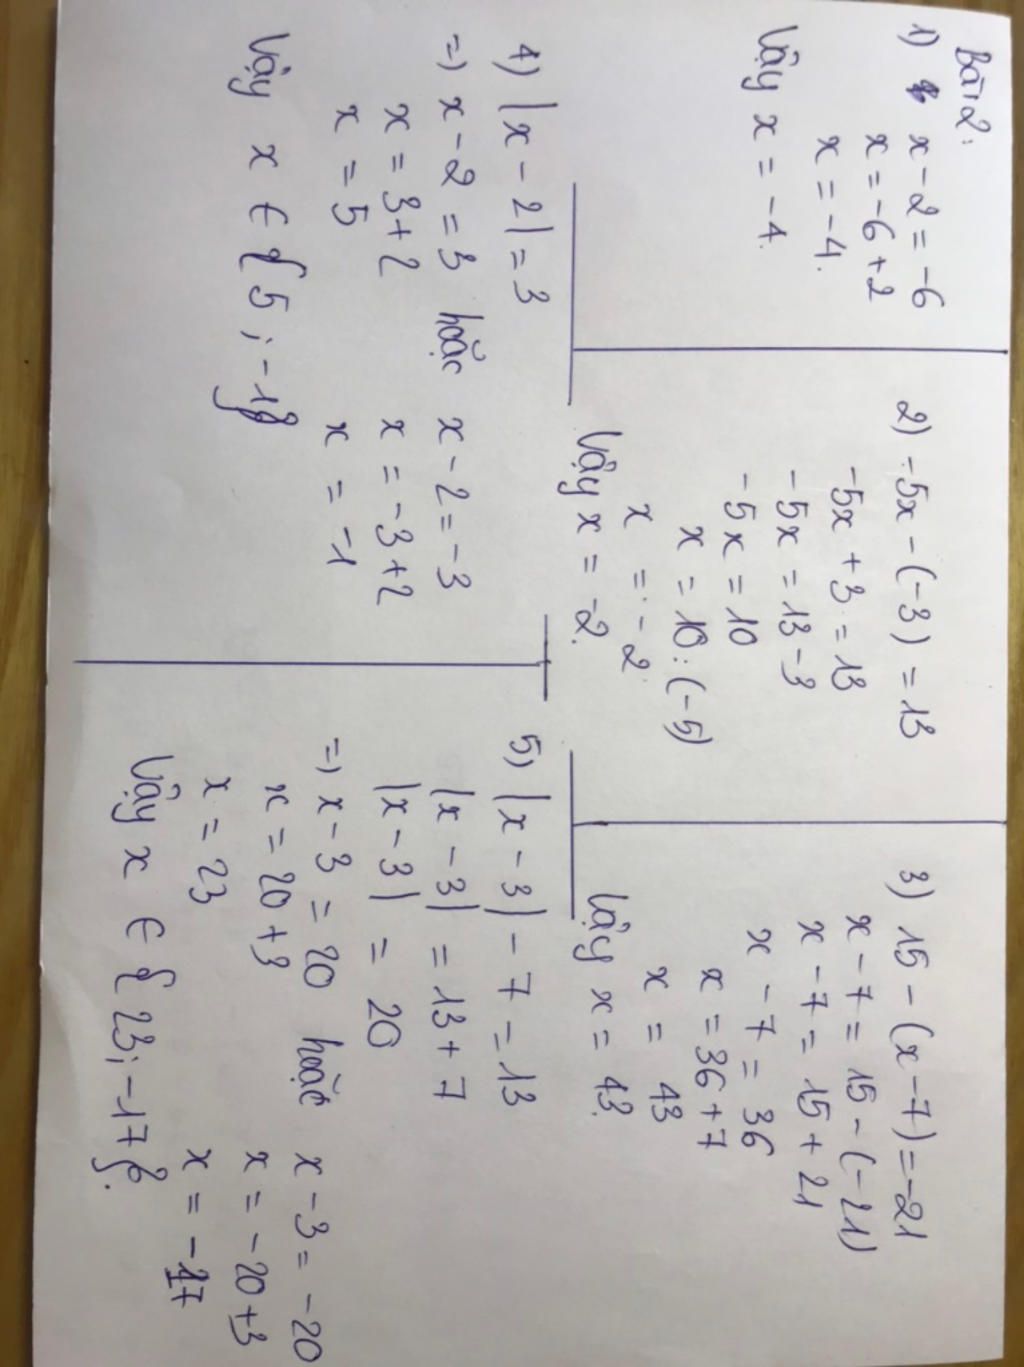 Bài 2:
1) x - 2 = -6
x = -6 + 2
x = -4.
Vậy x = -4.
2) -5x - (-3) = 13
-5x + 3 = 13
-5x = 13 - 3
-5x = 10
x = 10 : (-5)
x = -2
Vậy x = -2.
3) 15 - (x - 7) = -21
x - 7 = 15 - (-21)
x - 7 = 15 + 21
x - 7 = 36
x = 36 + 7
x = 43
Vậy x = 43.
4) |x - 2| = 3
=> x - 2 = 3 hoặc x - 2 = -3
x = 3 + 2 x = -3 + 2
x = 5 x = -1
Vậy x ∈ {5; -1}
5) |x - 3| - 7 = 13
|x - 3| = 13 + 7
|x - 3| = 20
=> x - 3 = 20 hoặc x - 3 = -20
x = 20 + 3 x = -20 + 3
x = 23 x = -17
Vậy x ∈ {23; -17}.